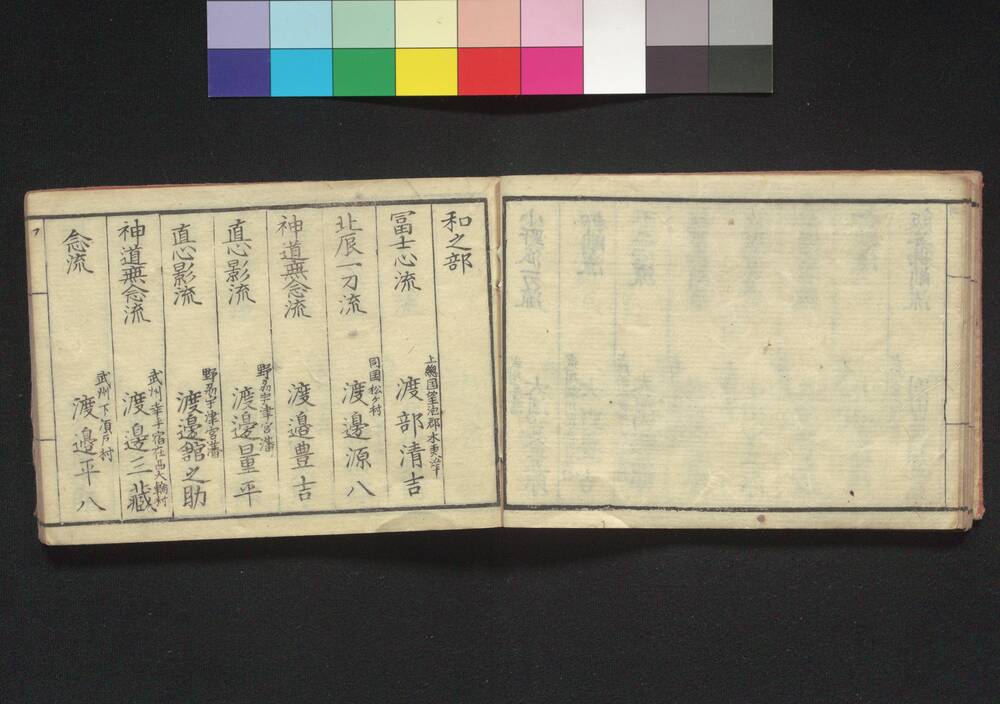 和之部
冨士心流
上總国望陀郡木更津
渡部清吉
北辰一刀流
同国松ヶ村
渡邊源八
神道無念流
渡邉豊吉
直心影流
野州宇津宮藩
渡邊量平
直心影流
野州宇津宮藩
渡邊舘之助
神道無念流
武州幸手宿在西大輪村
渡邊三藏
念流
武州下須戸村
渡邉平八